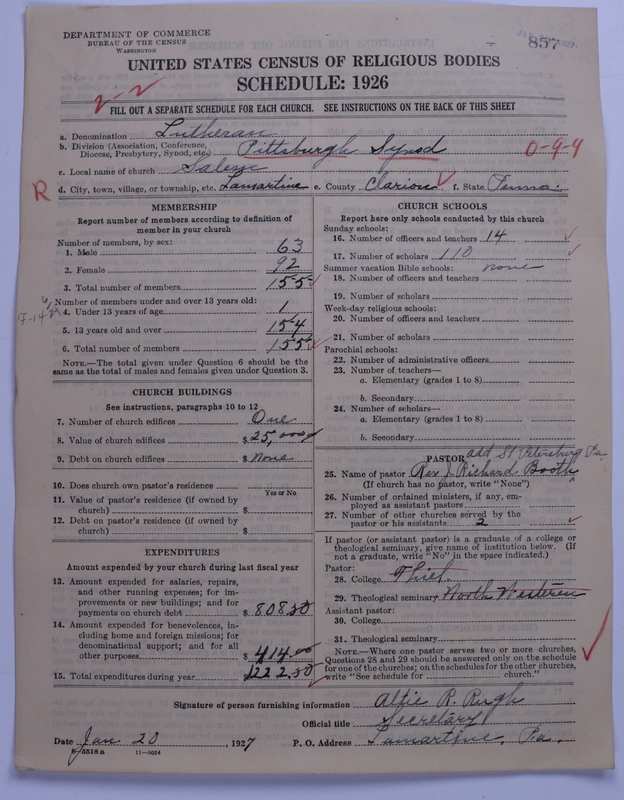 DEPARTMENT OF COMMERCE
BUREAU OF THE CENSUS
WASHINGTON
857
UNITED STATES CENSUS OF RELIGIOUS BODIES
SCHEDULE: 1926
2-2
FILL OUT A SEPARATE SCHEDULE FOR EACH CHURCH. SEE INSTRUCTIONS ON THE BACK OF THIS SHEET
a. Denomination Lutheran
b. Division (Association, Conference, Diocese, Presbytery, Synod, etc.) Pittsburgh Synod 0-9-9
c. Local name of church Salem
R d. City, town, village, or township, etc. Lamartine e. County Clarion f. State Penna.
MEMBERSHIP
Report number of members according to definition of
member in your church
Number of members, by sex:
1. Male 63
2. Female 92
3. Total number of members 155
Number of members under and over 13 years old:
4. Under 13 years of age 1
5. 13 years old and over 154
6. Total number of members 155
NOTE.—The total given under Question 6 should be the
same as the total of males and females given under Question 3.
CHURCH BUILDINGS
See instructions, paragraphs 10 to 12
7. Number of church edifices One
8. Value of church edifices $ 25,000
9. Debt on church edifices $ None
10. Does church own pastor's residence
Yes or No
11. Value of pastor's residence (if owned by
church) $
12. Debt on pastor's residence (if owned by
church) $
EXPENDITURES
Amount expended by your church during last fiscal year
13. Amount expended for salaries, repairs,
and other running expenses; for im-
provements or new buildings; and for
payments on church debt $ 808.50
14. Amount expended for benevolences, in-
cluding home and foreign missions; for
denominational support; and for all
other purposes $ 414.00
15. Total expenditures during year $ 1222.50
CHURCH SCHOOLS
Report here only schools conducted by this church
Sunday schools:
16. Number of officers and teachers 14
17. Number of scholars 110
Summer vacation Bible schools: none
18. Number of officers and teachers
19. Number of scholars
Week-day religious schools:
20. Number of officers and teachers
21. Number of scholars
Parochial schools:
22. Number of administrative officers
23. Number of teachers—
a. Elementary (grades 1 to 8)
b. Secondary
24. Number of scholars—
a. Elementary (grades 1 to 8)
b. Secondary
PASTOR add St Petersburg Pa
25. Name of pastor Rev J. Richard Booth
(If church has no pastor, write "None")
26. Number of ordained ministers, if any, em-
ployed as assistant pastors
27. Number of other churches served by the
pastor or his assistants 2
If pastor (or assistant pastor) is a graduate of a college or
theological seminary, give name of institution below. (If
not a graduate, write "No" in the space indicated.)
Pastor:
28. College Thiel
29. Theological seminary North Western
Assistant pastor:
30. College
31. Theological seminary
NOTE.—Where one pastor serves two or more churches,
Questions 28 and 29 should be answered only on the schedule
for one of the churches; on the schedules for the other churches,
write "See schedule for church."
Signature of person furnishing information Alfie R. Rugh
Official title Secretary
Date Jan 20, 1927 P. O. Address Lamartine, Pa.
8-5518a 11-9054